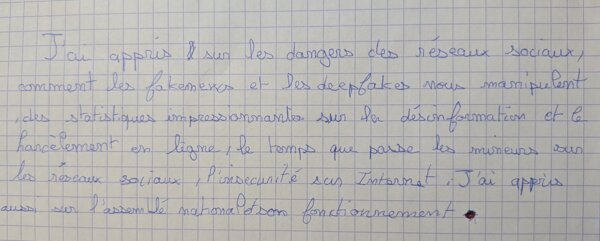 J'ai appris sur les dangers des réseaux sociaux,
comment les fakenews et les deepfakes nous manipulent
, des statistiques impressionnantes sur la désinformation et le
harcèlement en ligne, le temps que passe les mineurs sur
les réseaux sociaux, l'insecurité sur Internet. J'ai appris
aussi sur l'assemblé national et son fonctionnement.